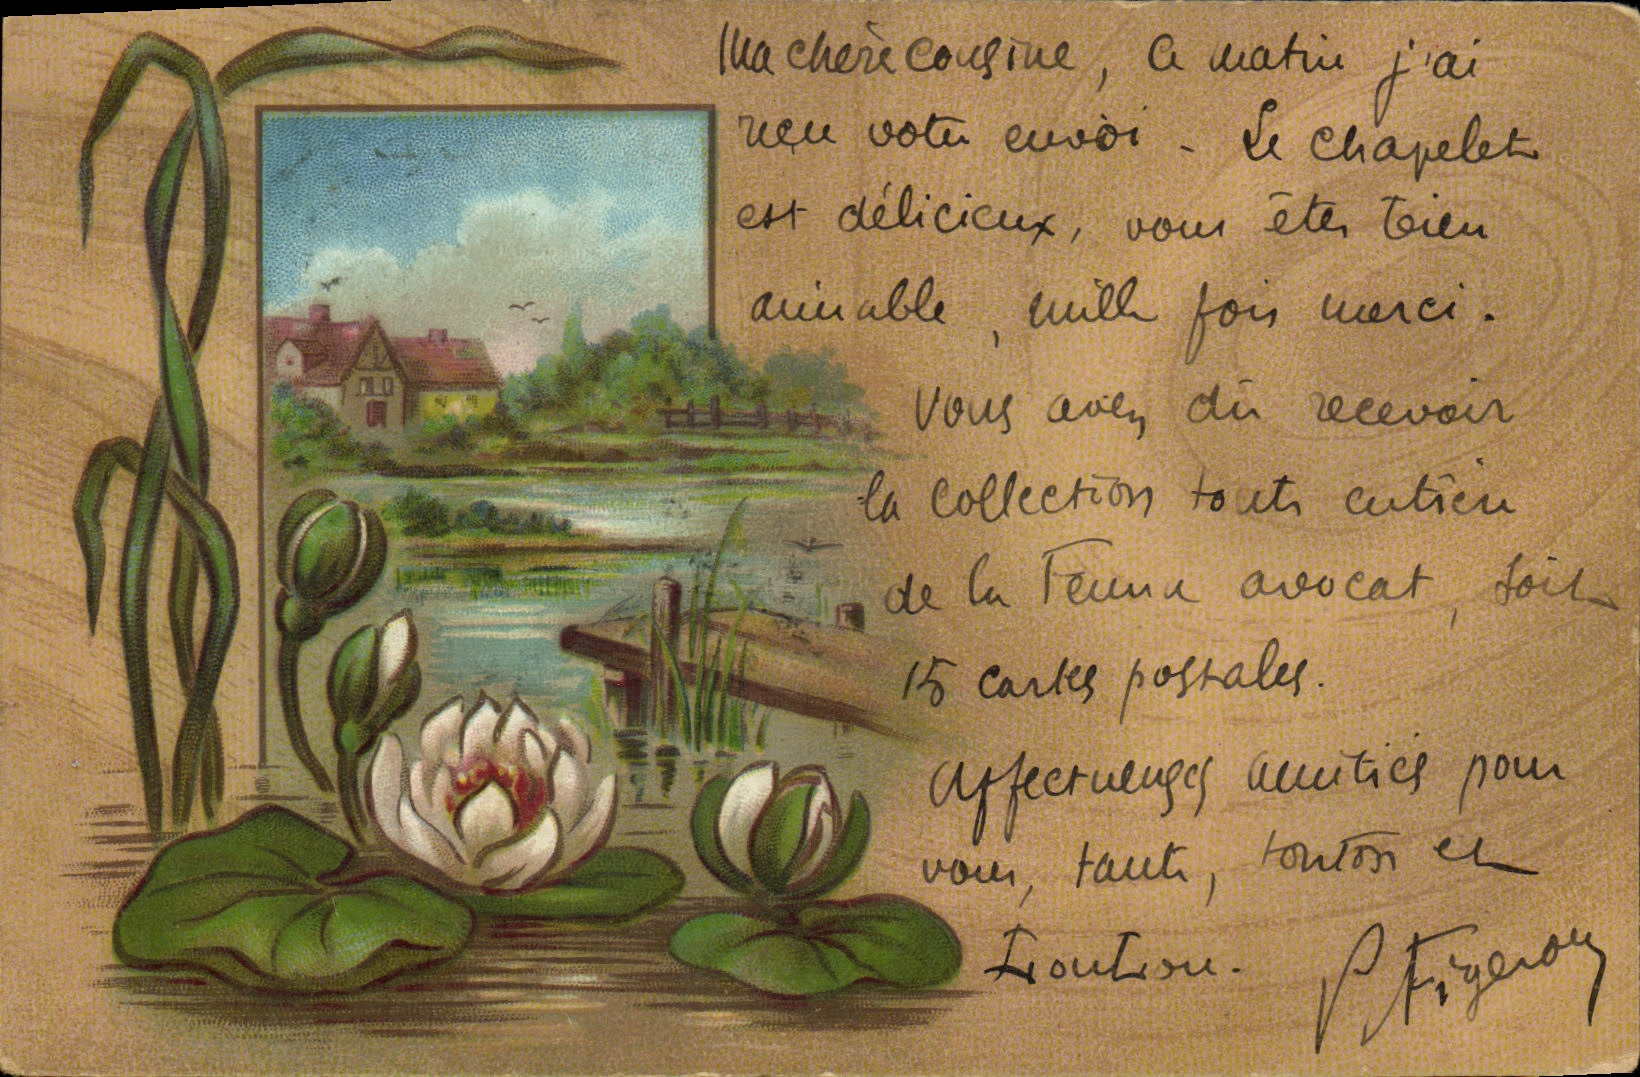 Ma chère cousine, ce matin j'ai
reçu votre envoi - Le chapelet
est délicieux, vous êtes bien
aimable, mille fois merci.
Vous avez dû recevoir
la collection toute entière
de la Femme avocat, soit
15 cartes postales.
Affectueuses amitiés pour
vous, tante, tonton et
Loulou.